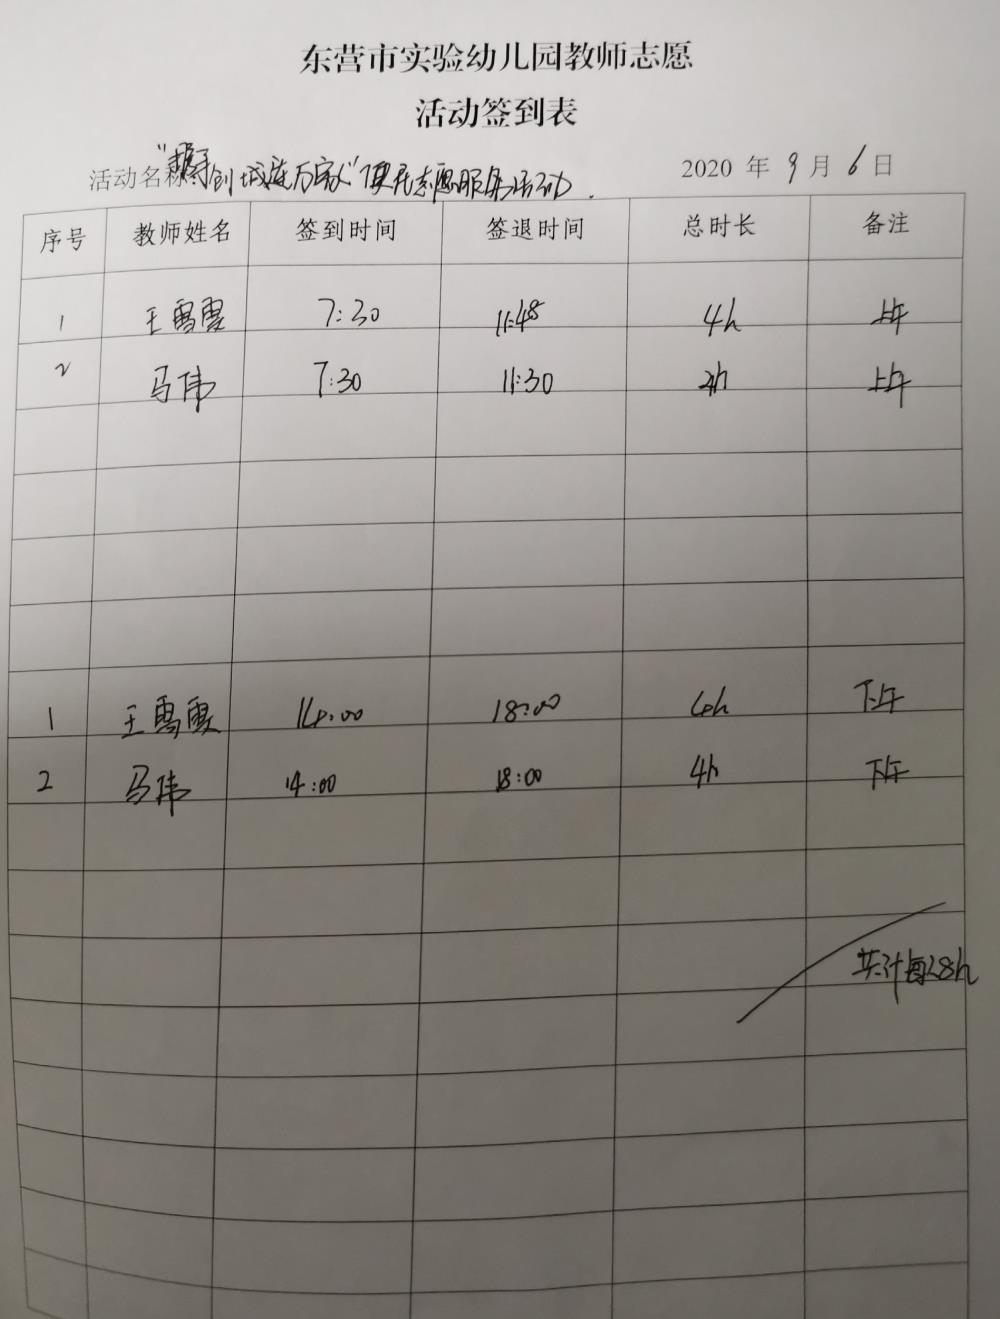 东营市实验幼儿园教师志愿
活动签到表
活动名称 "携手创城连万家"便民志愿服务活动. 2020 年 9 月 6 日
序号 教师姓名 签到时间 签退时间 总时长 备注
1 王雪雯 7:30 11:48 4h 上午
2 马伟 7:30 11:30 4h 上午
1 王雪雯 14:00 18:00 4h 下午
2 马伟 14:00 18:00 4h 下午
共计每人8h